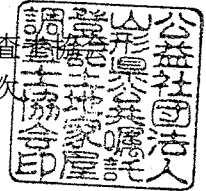 公益社団法人
山形県公共嘱託
登記土地家屋
調査士協会印
査
次